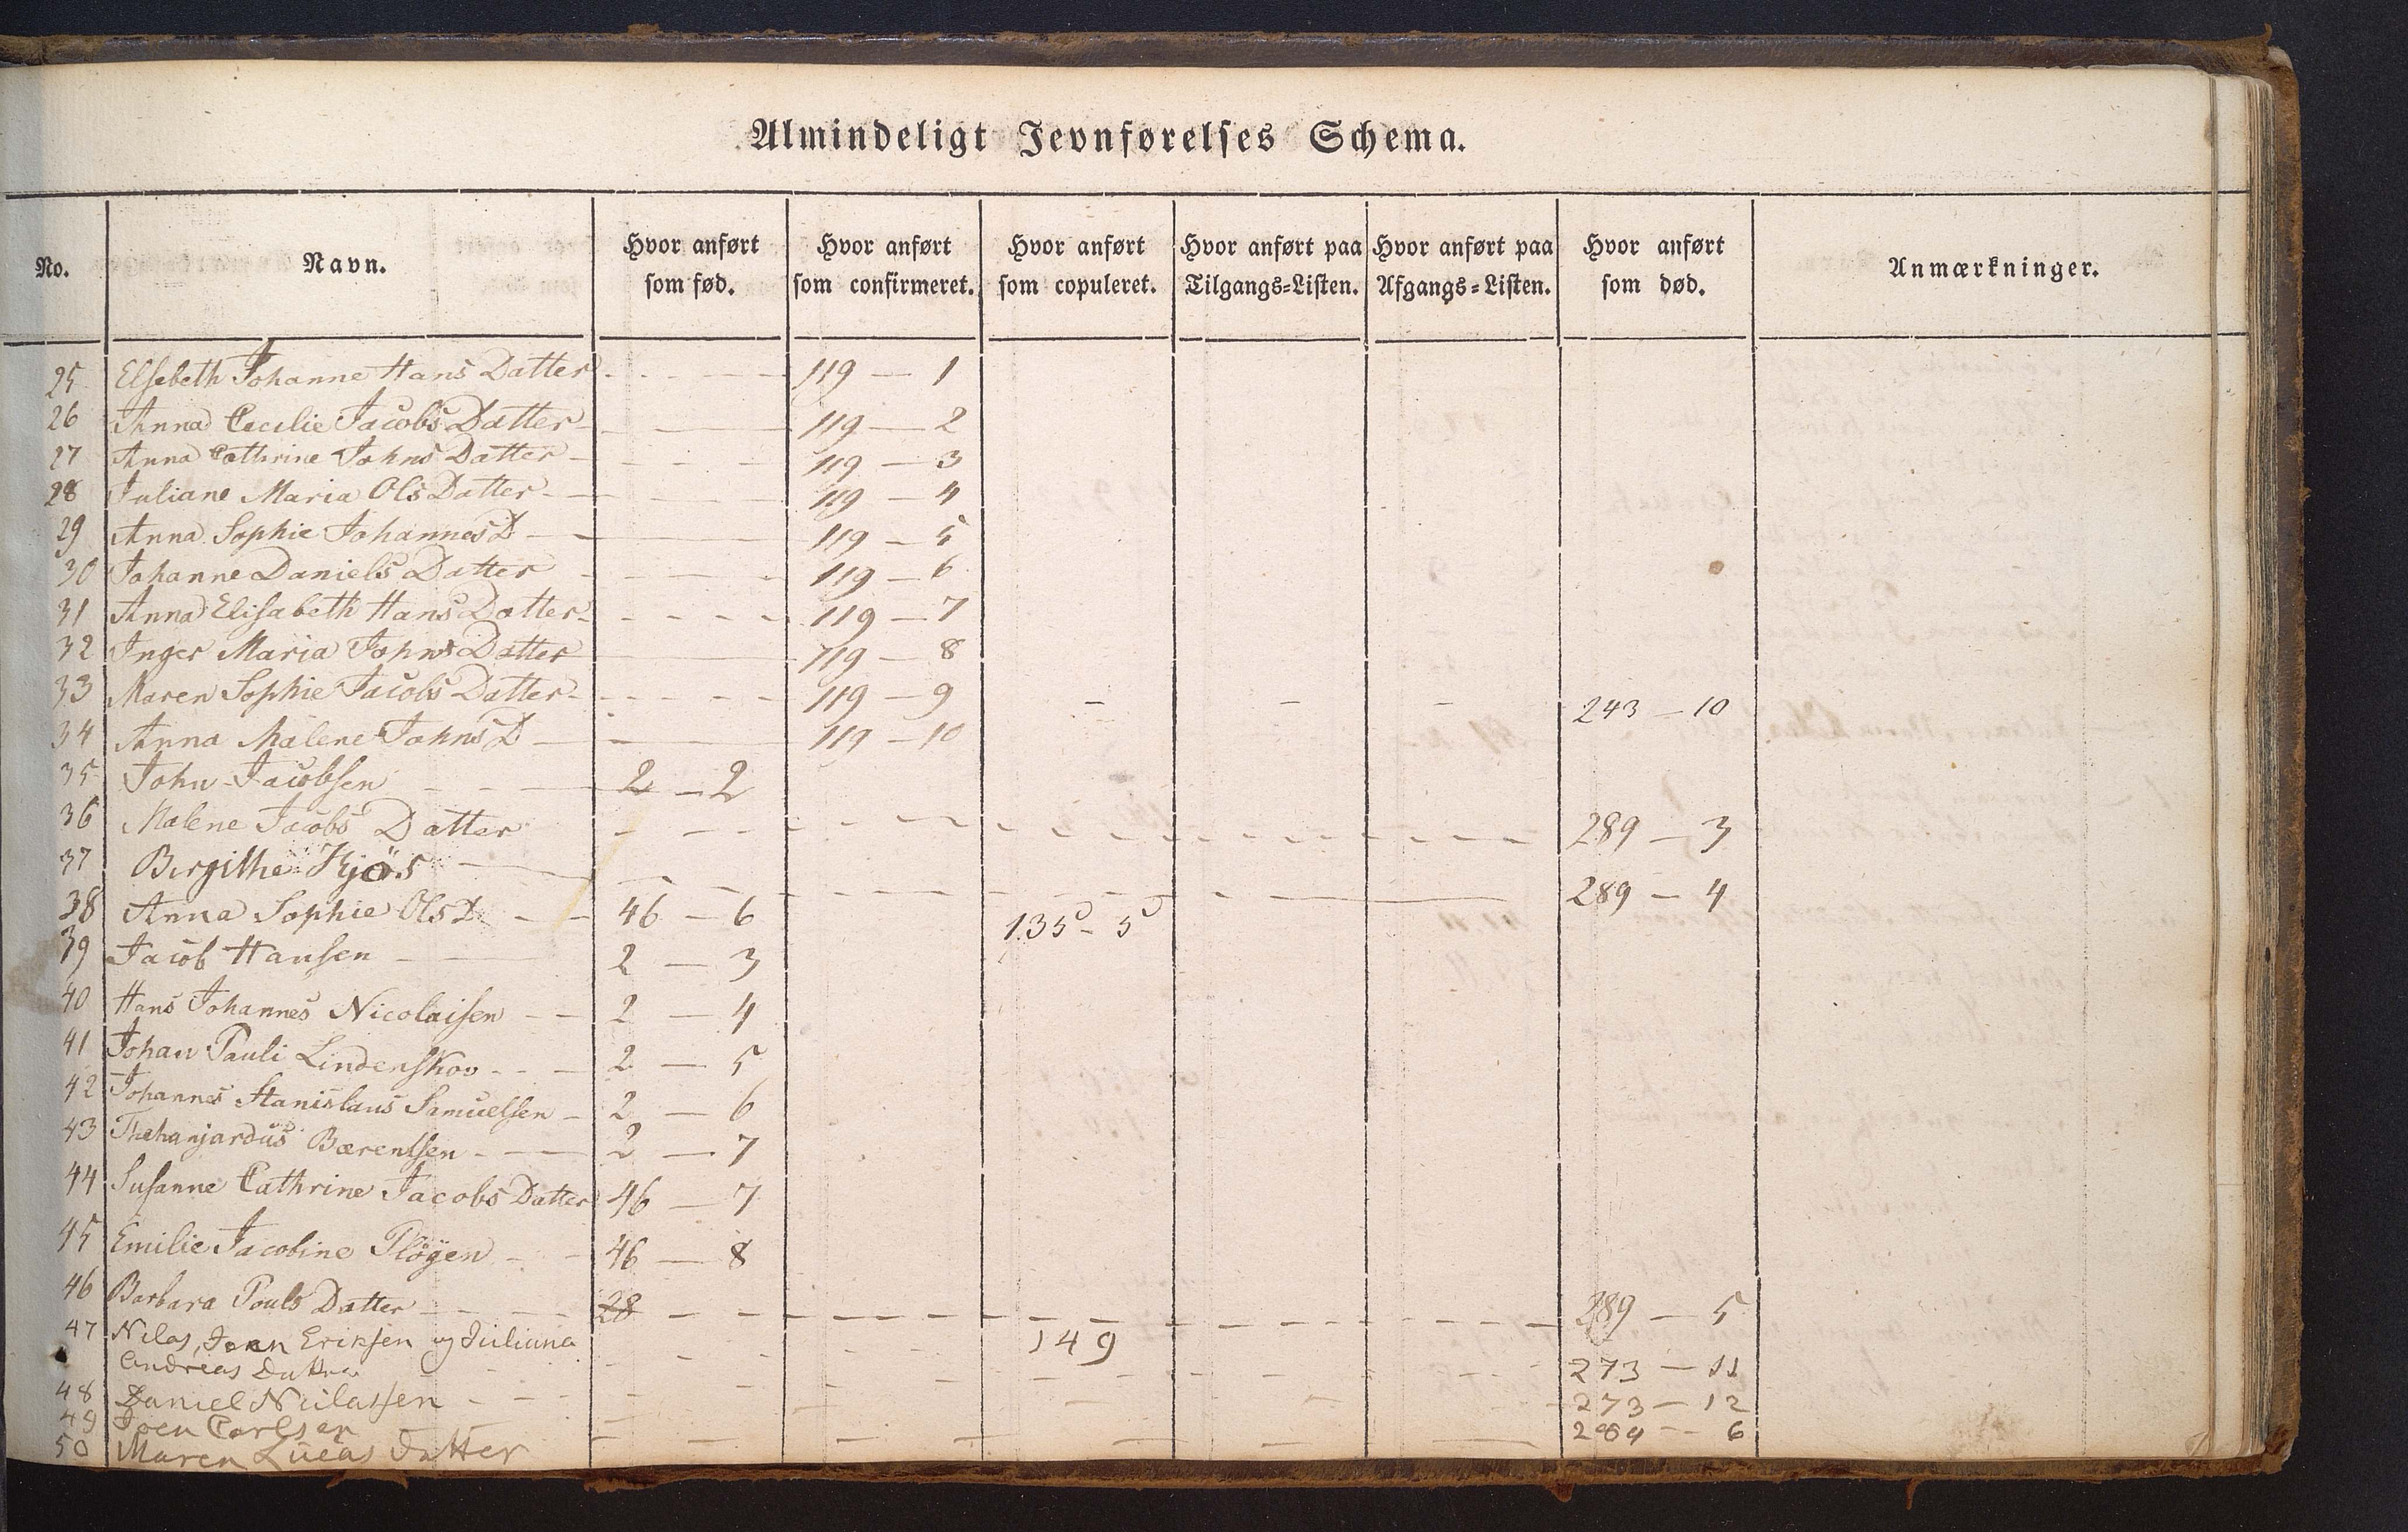 Almindeligt Jevnførelses Schema.
No. Navn. Hvor anført som fød. Hvor anført som confirmeret. Hvor anført som copuleret. Hvor anført paa Tilgangs=Listen. Hvor anført paa Afgangs=Listen. Hvor anført som død. Anmærkninger.
25 Elsebeth Johanne Hans Datter 119 — 1
26 Anna Cecilie Jacobs Datter 119 — 2
27 Anna Cathrine Johns Datter 119 — 3
28 Juliane Maria Ols Datter 119 — 4
29 Anna Sophie Johannes D 119 — 5
30 Johanne Daniels Datter 119 — 6
31 Anna Elisabeth Hans Datter 119 — 7
32 Inger Maria Johns Datter 119 — 8
33 Maren Sophie Jacobs Datter 119 — 9 243 — 10
34 Anna Malene Johns D 119 — 10
35 John Jacobsen 2 — 2
36 Malene Jacobs Datter 289 — 3
37 Birgithe Kjøs 289 — 4
38 Anna Sophie Ols D 46 — 6 135 - 5
39 Jacob Hansen 2 — 3
40 Hans Johannes Nicolaisen 2 — 4
41 Johan Pauli Lindenskov 2 — 5
42 Johannes Stanislaus Samuelsen 2 — 6
43 Bærentsen 2 — 7
44 Susanne Cathrine Jacobs Datter 46 — 7
45 Emilie Jacobine Pløyen 46 — 8
46 Barbara Pouls Datter 28 289 — 5
47 Nilas, Joen Eriksen og Juliana 149
Andreas Datter 273 — 11
48 Daniel Niclassen 273 — 12
49 Joen Carlsen 289 — 6
50 Maren Lucas Datter